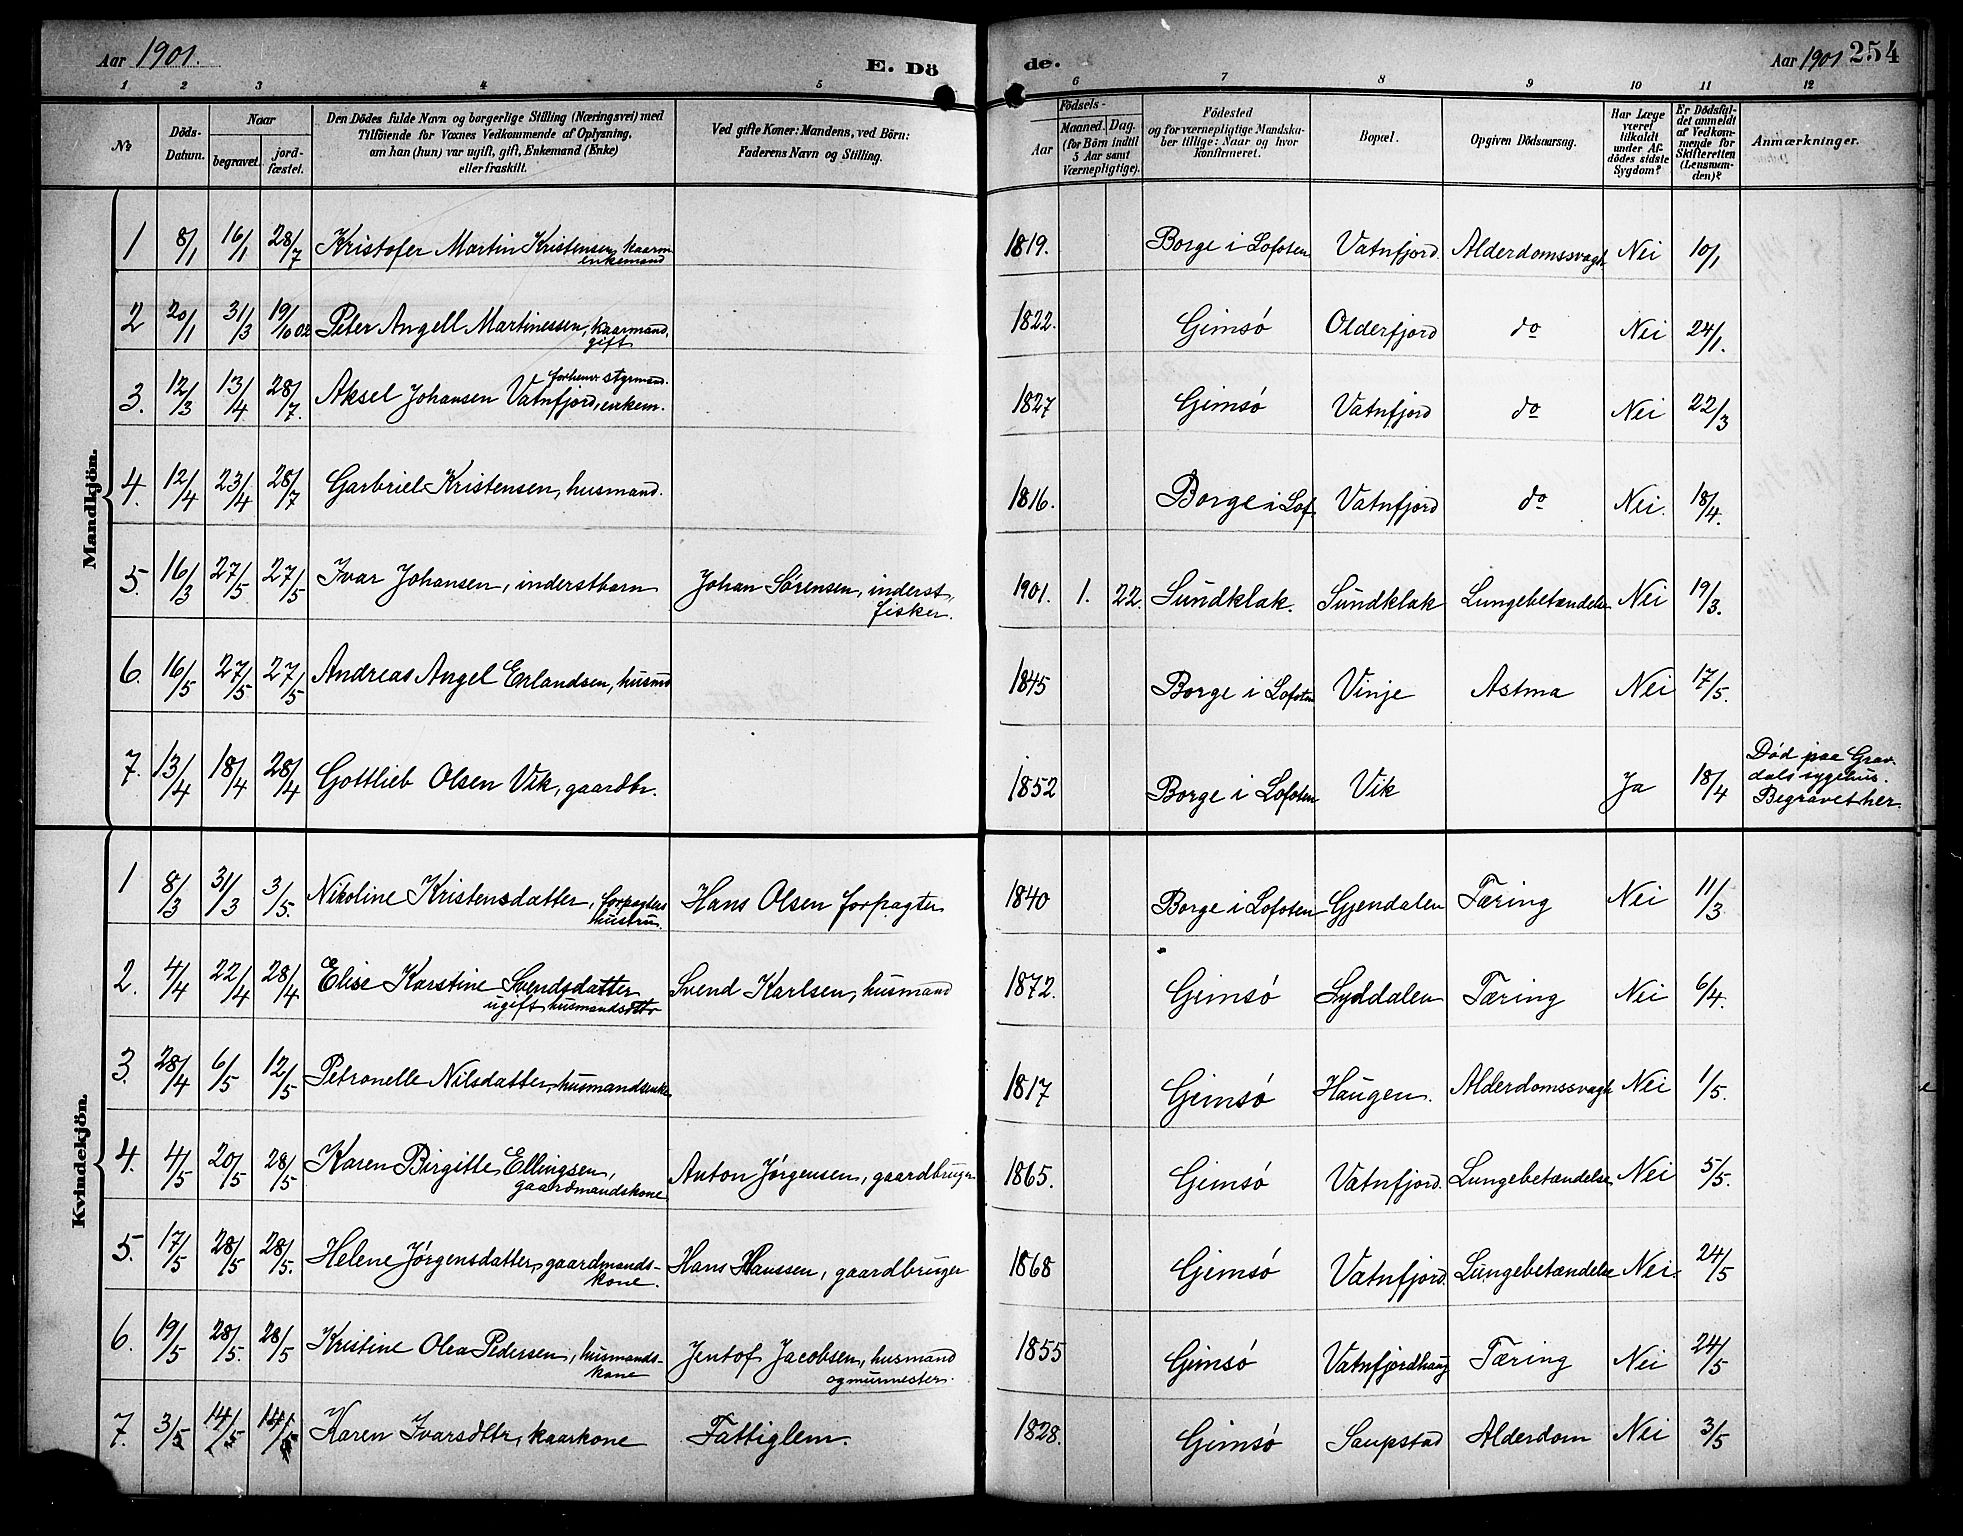 Aar 1901. E. Dö de. Aar 1901 254
1 2 3 4 5 6 7 8 9 10 11 12
№ Döds-Datum. Naar begravet. jordfæstet. Den Dödes fulde Navn og borgerlige Stilling (Næringsvei) med Tilföiende for Voxnes Vedkommende af Oplysning, om han (hun) var ugift, gift, Enkemand (Enke) eller fraskilt. Ved gifte Koner: Mandens, ved Börn: Faderens Navn og Stilling. Födsels- Aar Maaned. Dag. (for Börn indtil 5 Aar samt Værnepligtige). Födested og for værnepligtige Mandskaber tillige: Naar og hvor konfirmeret. Bopæl. Opgiven Dödsaarsag. Har Læge været tilkaldt under Afdödes sidste Sygdom? Er Dödsfaldet anmeldt af Vedkommende for Skifteretten (Lensmanden)? Anmærkninger.
Mandkjön.
1 8/1 16/1 28/7 Kristofer Martin Kristensen, kaarm. enkemand 1819. Borge i Lofoten Vatnfjord. Alderdomssvagh. Nei 10/1
2 20/1 31/3 19/10 02 Peter Angell Martinessen, kaarmand, gift 1822. Gimsö Olderfjord do Nei 24/1.
3. 12/3 13/4 28/7. Aksel Johansen Vatnfjord, forhenv. styrmand. enkem. 1827 Gimsö Vatnfjord do Nei 22/3
4. 12/4 23/4 28/7 Garbriel Kristensen, husmand. 1816. Borge i Lof. Vatnfjord do Nei. 18/4.
5. 16/3 27/5 27/5 Ivar Johansen, inderstbarn Johan Sørensen, inderst, fisker. 1901. 1. 22. Sundklak. Sundklak Lungebetændelse Nei 19/3.
6. 16/5 27/5 27/5 Andreas Angel Erlandsen, husmd 1845 Borge i Lofoten Vinje Astma Nei 17/5.
7. 13/4 18/4 28/4 Gottlieb Olsen Vik, gaardbr. 1852 Borge i Lofoten Vik Ja 18/4 Død paa Gravdals sygehus. Begravet her.
Kvindekjön.
1 8/3 31/3 3/5. Nikoline Kristensdatter, forpagters hustru. Hans Olsen forpagter 1840 Borge i Lofoten Gjendalen Tæring Nei 11/3
2. 4/4 22/4 28/4 Elise Karstine Svendsdatter ugift husmandsdtr Svend Karlsen, husmand 1872. Gimsö Lyddalen Tæring Nei 6/4.
3. 28/4 6/5 12/5 Petronelle Nilsdatter, husmandsenke 1817 Gimsö Haugen. Alderdomssvagh. Nei 1/5.
4. 4/5 20/5 28/5 Karen Birgitte Ellingsen, gaardmandskone Anton Jørgensen, gaardbruger 1865. Gimsö Vatnfjord. Lungebetændelse Nei 5/5.
5. 17/5 28/5 28/5. Helene Jørgensdatter, gaardmandskone. Hans Hanssen, gaardbruger 1868 Gimsö Vatnfjord. Lungebetændelse Nei. 24/5
6. 19/5 28/5. 28/5 Kristine Olea Pedersen, husmandskone Jentof Jacobsen, husmand og murmester. 1855 Gimsö Vatnfjordhaug Tæring Nei 24/5
7. 3/5 14/5 14/5 Karen Ivarsdtr, kaarkone Fattiglem. 1828. Gimsö Saupstad Alderdom Nei 3/5